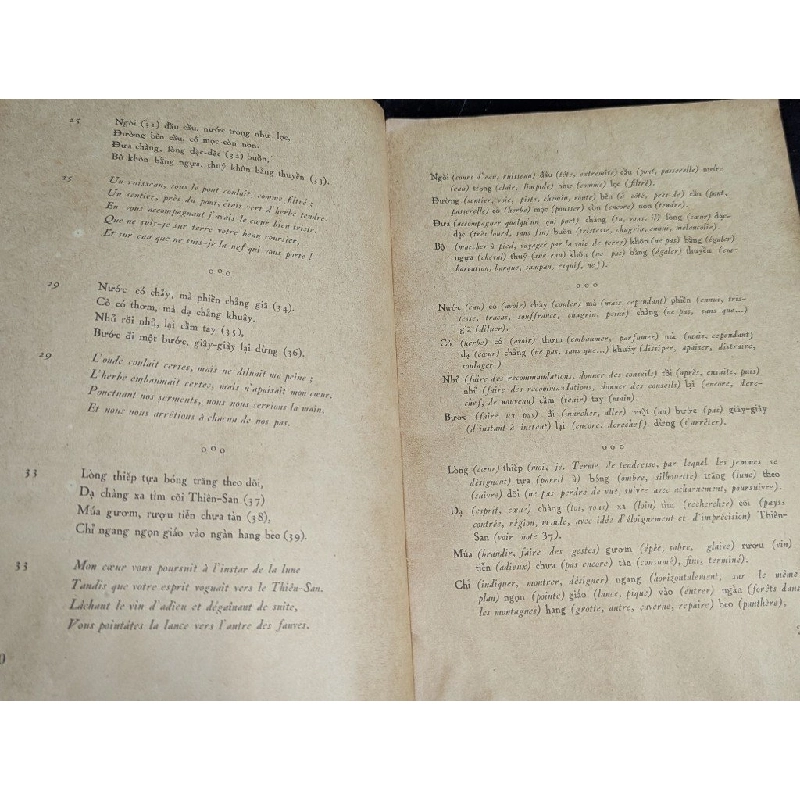 25
Ngòi (31) đầu cầu, nước trong như lọc,
Đường bên cầu, cỏ mọc còn non.
Đưa chàng, lòng dặc-dặc (32) buồn,
Bộ khôn bằng ngựa, thuỷ khôn bằng thuyền (33).
25
Un ruisseau, sous le pont coulait, comme filtré ;
Un sentier, près du pont, était vert d'herbe tendre.
En vous accompagnant j'avais le cœur bien triste.
Que ne suis-je sur terre votre bon coursier,
Et sur eau que ne suis-je la nef qui vous porte !
29
Nước có chảy, mà phiền chẳng giã (34).
Cỏ có thơm, mà dạ chẳng khuây.
Nhủ rồi nhủ, lại cầm tay (35),
Bước đi một bước, giây-giây lại dừng (36).
29
L'onde coulait certes, mais ne diluait ma peine ;
L'herbe embaumait certes, mais n'apaisait mon cœur.
Ponctuant nos serments, nous nous serrions la main.
Et nous nous arrêtions à chacun de nos pas.
33
Lòng thiếp tựa bóng trăng theo dõi,
Dạ chàng xa tìm cõi Thiên-San (37)
Múa gươm, rượu tiễn chưa tàn (38),
Chỉ ngang ngọn giáo vào ngàn hang beo (39).
33
Mon cœur vous poursuit à l'instar de la lune
Tandis que votre esprit voguait vers le Thiên-San.
Lâchant le vin d'adieu et dégainant de suite,
Vous pointâtes la lance vers l'antre des fauves.
0
Ngòi (cours d'eau, ruisseau) đầu (tête, extrémité) cầu (pont, passerelle) nước
(eau) trong (clair, limpide) như (comme) lọc (filtré).
Đường (sentier, voie, piste, chemin, route) bên (à côté, près de) cầu (pont,
passerelle) cỏ (herbe) mọc (pousser) còn (encore) non (tendre).
Đưa (accompagner quelqu'un en port) chàng (tu, vous) lòng (cœur) dặc-
dặc (très lourd, sans fin) buồn (tristesse, chagrin, ennui, mélancolie).
Bộ (marcher à pied, voyager par la voie de terre) khôn (ne pas) bằng (égaler)
ngựa (cheval) thuỷ (sur eau) khôn (ne pas) bằng (égaler) thuyền (em-
barcation, barque, sampan, esquif, nef).
Nước (eau) có (avoir) chảy (couler) mà (mais, cependant) phiền (ennui, tris-
tesse, tracas, souffrance, chagrin, peine) chẳng (ne pas, sans que...)
giã (diluer).
Cỏ (herbe) có (avoir) thơm (embaumer, parfumer) mà (mais, cependant)
dạ (cœur) chẳng (ne pas, sans que...) khuây (dissiper, apaiser, distraire,
soulager)
Nhủ (faire des recommandations, donner des conseils) rồi (après, ensuite, puis)
nhủ (faire des recommandations, donner des conseils) lại (encore, dere-
chef, de nouveau) cầm (tenir) tay (main).
Bước (faire un pas) đi (marcher, aller) một (un) bước (pas) giây-giây
(d'instant à instant) lại (encore, derechef) dừng (s'arrêter).
Lòng (cœur) thiếp (moi, je. Terme de tendresse, par lequel les femmes se
désignent) tựa (pareil à) bóng (ombre, silhouette) trăng (lune) theo
(suivre) dõi (ne pas perdre de vue, suivre avec acharnement, poursuivre).
Dạ (esprit, cœur) chàng (toi, vous) xa (loin) tìm (rechercher) cõi (pays,
contrée, région, monde, avec idée d'éloignement et d'imprécision) Thiên-
San (voir note 37).
Múa (brandir, faire des gestes) gươm (épée, sabre, glaive) rượu (vin)
tiễn (adieux) chưa (pas encore) tàn (consumé, fini, terminé).
Chỉ (indiquer, montrer, désigner) ngang (horizontalement, sur le même
plan) ngọn (pointe) giáo (lance, pique) vào (entrer) ngàn (forêts dans
les montagnes) hang (grotte, antre, caverne, repaire) beo (panthère).